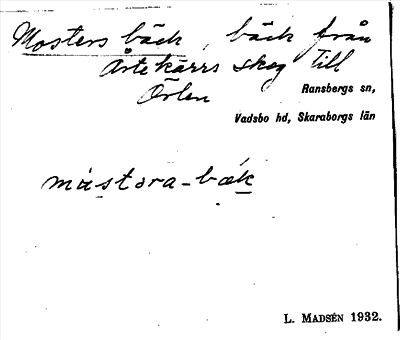 Mosters bäck, bäck från
Ärtekärrs skog till
Örlen
Ransbergs sn,
Vadsbo hd, Skaraborgs län
måstora-bæk
L. MADSÉN 1932.